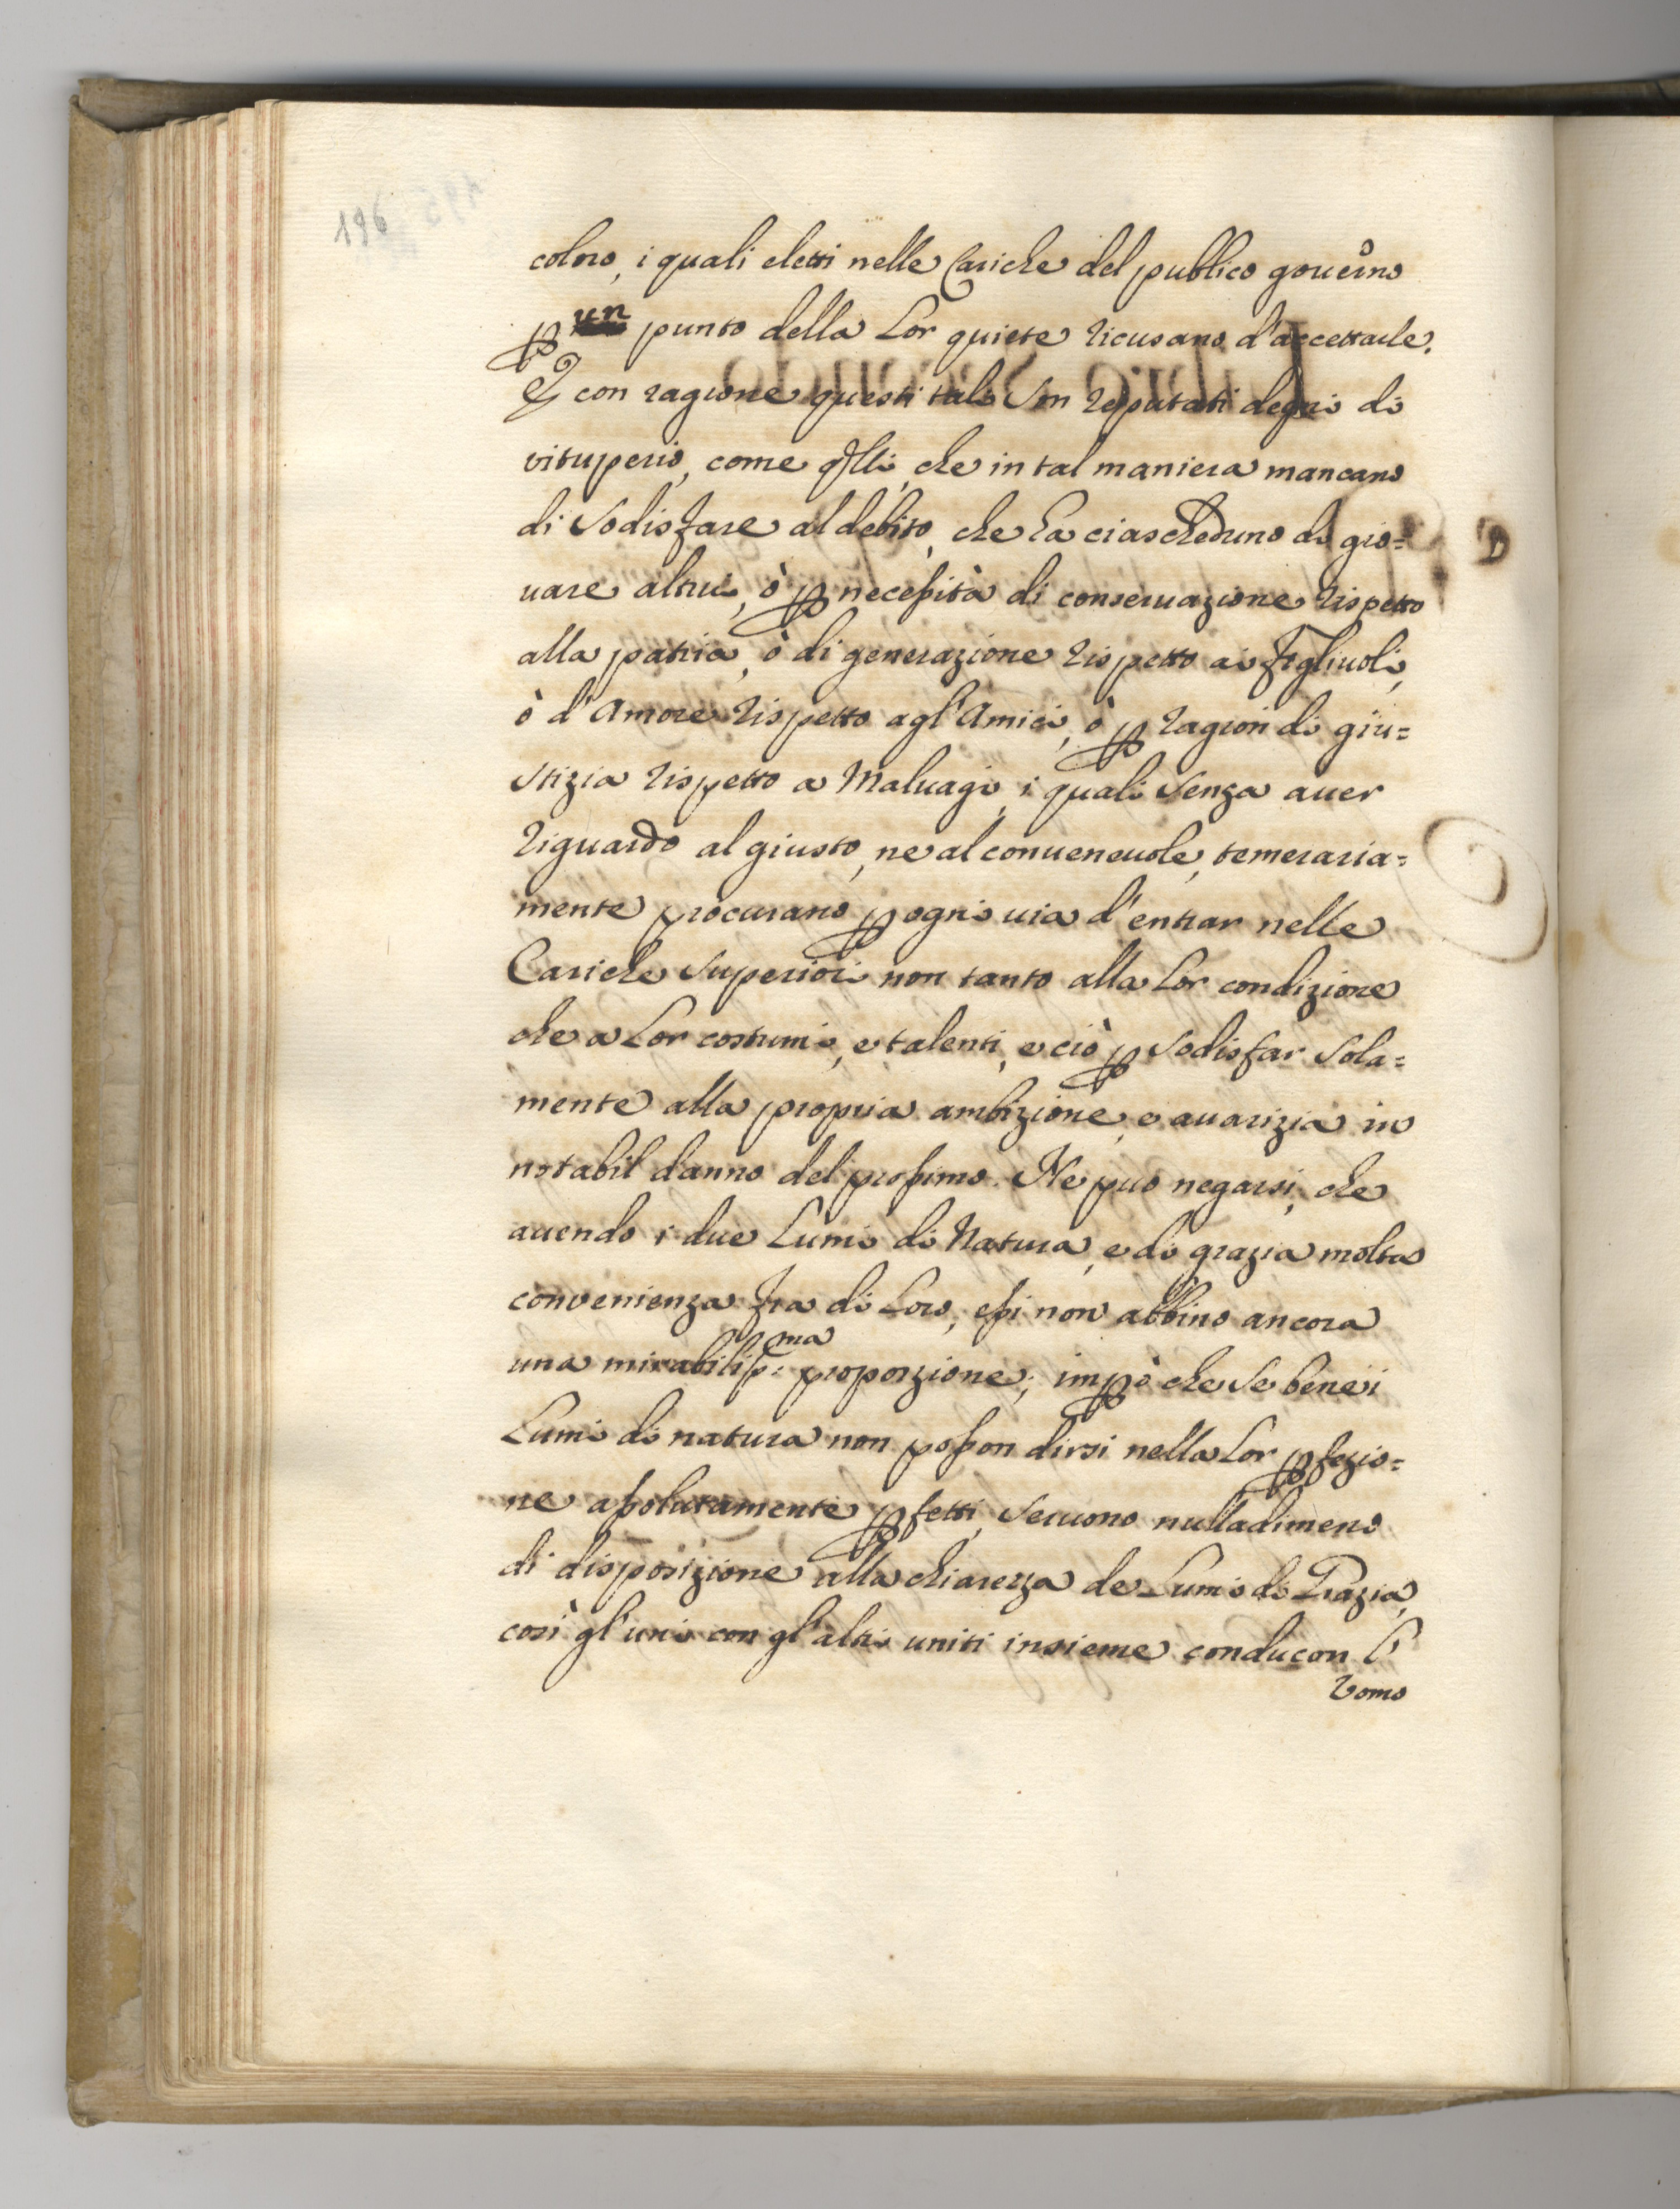 196
coloro, i quali eletti nelle Cariche del publico gouerno
ꝑ un punto della Lor quiete ricusano d'accettarle.
E con ragione questi tali son reputati degni di
vituperio, come q̃lli, che in tal maniera mancano
di sodisfare al debito, che ha ciascheduno di gio=
uare altrui, ò ꝑ necessità di conseruazione rispetto
alla patria, ò di generazione rispetto ai figliuoli,
ò d'Amore rispetto agl'Amici, ò ꝑ ragion di giu=
stizia rispetto a Maluagi, i quali senza auer
riguardo al giusto, ne al conueneuole, temeraria=
mente procurano ꝑ ogni uia d'entrar nelle
Cariche superiori non tanto alla Lor condizione
che a Lor costumi, e talenti, e ciò ꝑ sodisfar sola=
mente alla propria ambizione, e auarizia in
notabil danno del prossimo. Ne può negarsi, che
auendo i due Lumi di Natura, e di grazia molta
convenienza fra di Loro, essi non abbino ancora
una mirabiliss:ma proporzione; imꝑò che se bene i
Lumi di natura non posson dirsi nella Lor ꝑfezio=
ne assolutamente ꝑfetti, seruono nulladimeno
di disposizione alla chiarezza de Lumi di Grazia,
così gl'uni con gl'altri uniti insieme conducon l'
Vomo